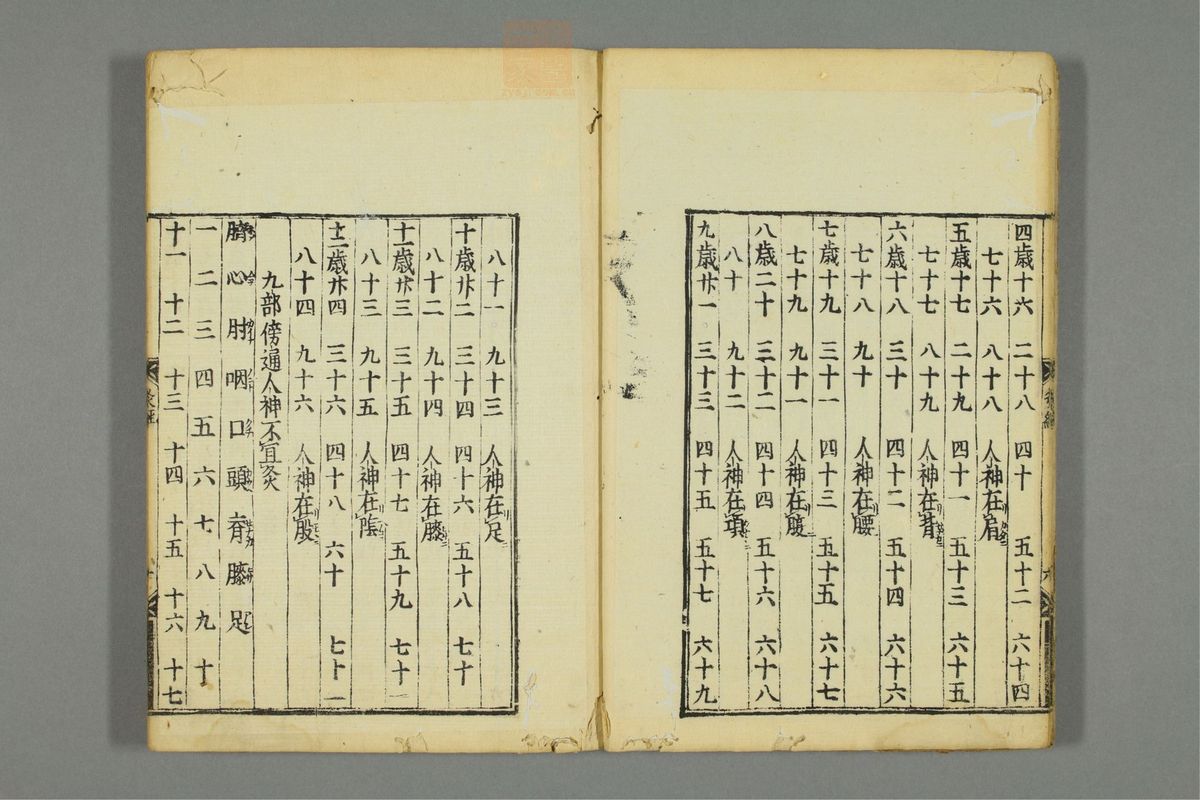 四歳十六 二十八 四十 五十二 六十四
七十六 八十八 人神在肩
五歳十七 二十九 四十一 五十三 六十五
七十七 八十九 人神在背
六歳十八 三十 四十二 五十四 六十六
七十八 九十 人神在腰
七歳十九 三十一 四十三 五十五 六十七
七十九 九十一 人神在腹
八歳二十 三十二 四十四 五十六 六十八
八十 九十二 人神在頭
九歳廿一 三十三 四十五 五十七 六十九
八十一 九十三 人神在足
十歳廿二 三十四 四十六 五十八 七十
八十二 九十四 人神在膝
十一歳廿三 三十五 四十七 五十九 七十一
八十三 九十五 人神在陰
十二歳廿四 三十六 四十八 六十 七十二
八十四 九十六 人神在股
九部傍通人神不宜灸
臍 心 肘 咽 口 頭 脊 膝 足
一 二 三 四 五 六 七 八 九 十
十一 十二 十三 十四 十五 十六 十七